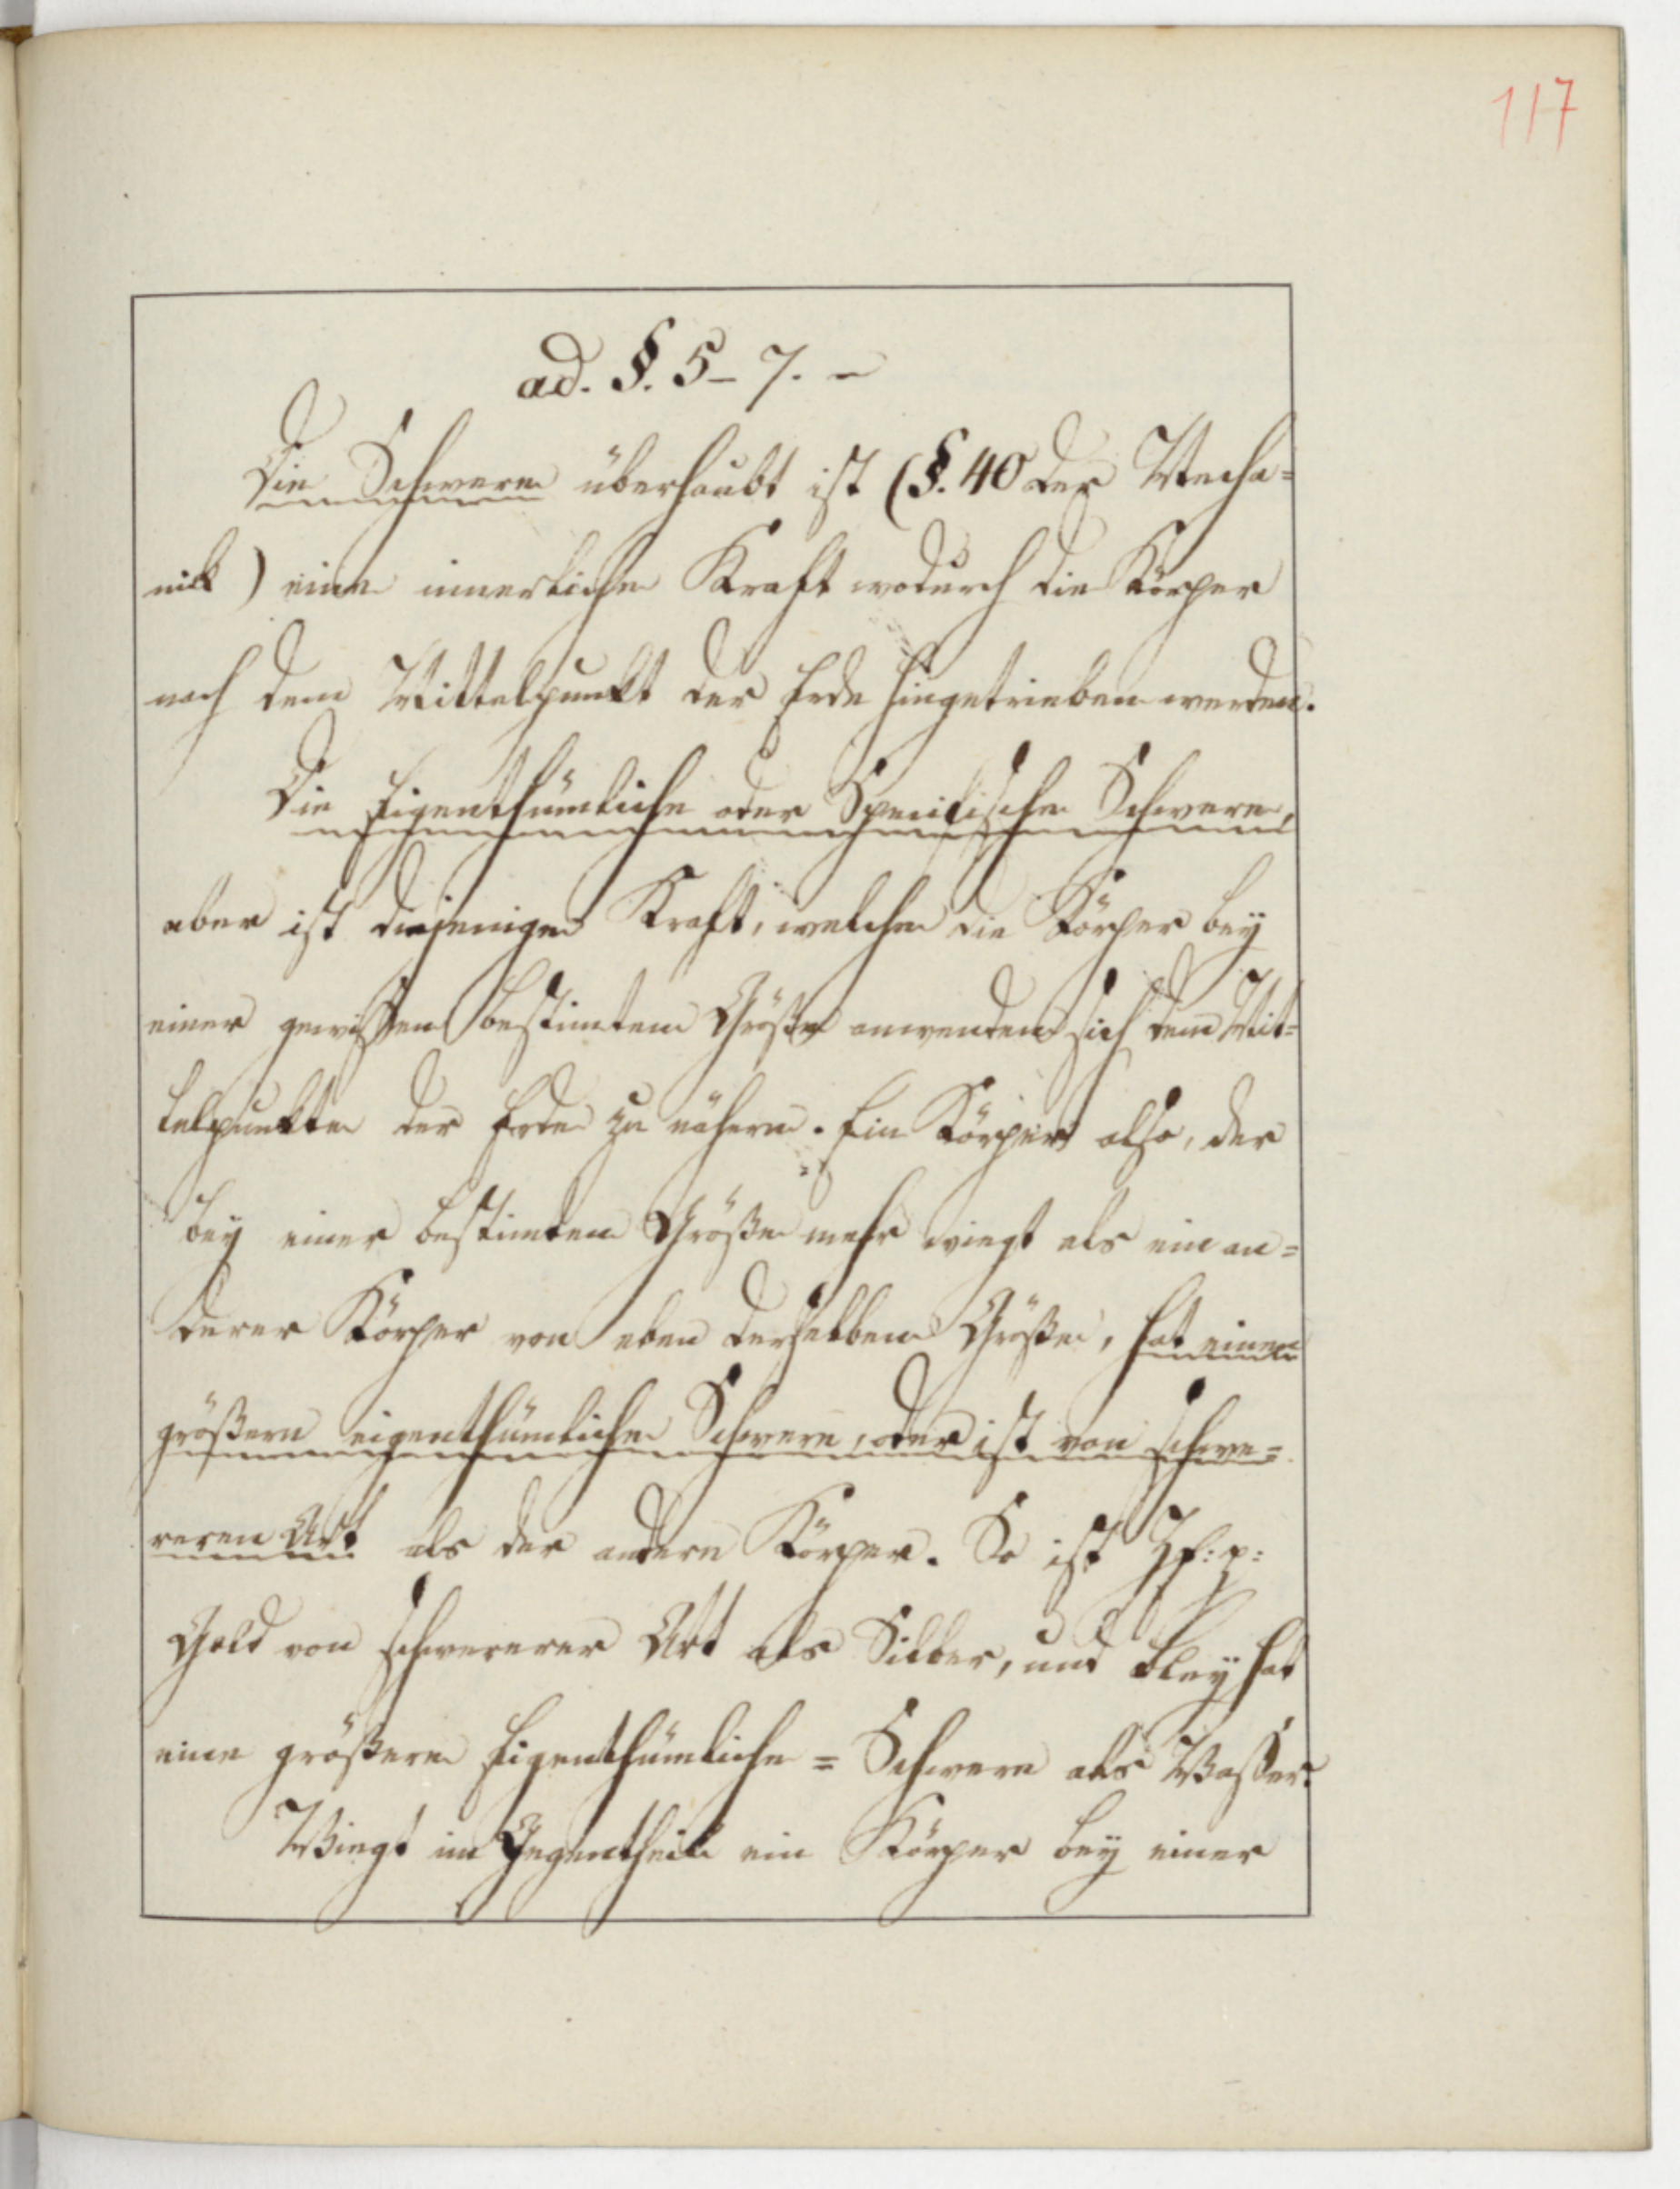 117
ad. §. 5-7. -
Die Schwere überhaubt ist (§. 40 der Mecha=
nik) eine innerliche Kraft wodurch die Körper
nach dem Mittelpunkt der Erde hingetrieben werden.
Die Eigenthümliche oder Specifische Schwere,
aber ist diejenige Kraft, welche die Körper bey
einer gewissen bestimten Größe anwenden sich dem Mit=
telpunkte der Erde zu nähern. Ein Körper also, der
bey einer bestimten Größe mehr wiegt als ein an=
derer Körper von eben derselben Größe, hat eine
größere eigenthümliche Schwere, oder ist von schwe=
reren Art als der andere Körper. So ist
Gold von schwererer Art als Silber, und Bley hat
eine größere Eigenthümliche = Schwere als Wasser.
Wiegt im Gegentheil ein Körper bey einer